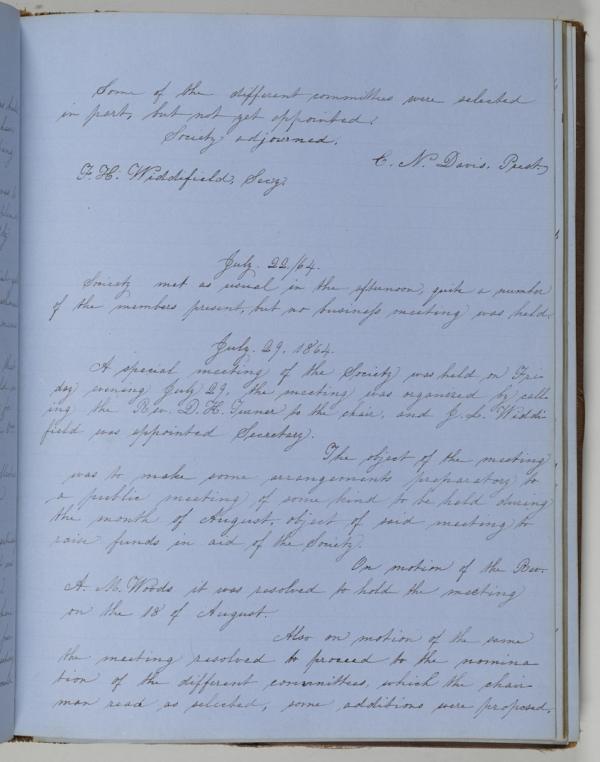 Some of the different committees were selected
in part, but not yet appointed.
Society adjourned.
C. N. Davis. Prest.
F. H. Widdefield, Secy.
July. 22/64.
Society met as usual in the afternoon, quite a number
of the members present, but no business meeting was held.
July. 29. 1864.
A special meeting of the Society was held on Fri-
day evening July 29, the meeting was organized by call-
ing the Rev. D. H. to the chair, and J. L. Widdi-
field was appointed Secretary.
The object of the meeting
was to make some arrangements preparatory to
a public meeting of some kind to be held during
the month of August. object of said meeting to
raise funds in aid of the Society.
On motion of the Rev.
A. M. Woods it was resolved to hold the meeting
on the 18 of August.
Also on motion of the same
the meeting resolved to proceed to the nomina
tion of the different committees, which the chair
man read as selected, some additions were proposed,